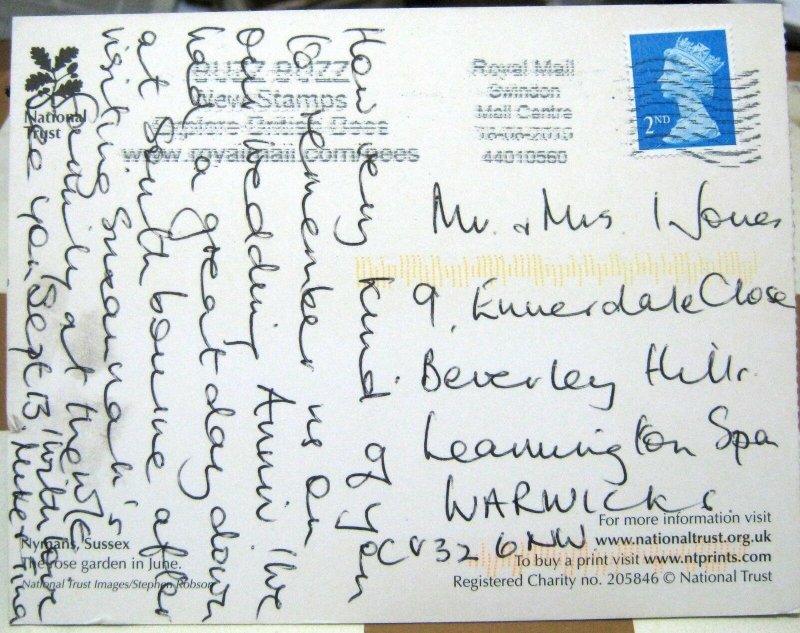 National
Trust
BUZZ BUZZ
New Stamps
explore British Bees
www.royalmail.com/bees
Royal Mail
Swindon
Mail Centre
44010560
2ND
How very kind of you
to remember us on
our wedding Anniv! We
had a great day down
at South bourne after
visiting Suzannah's
family at the W/E
See you Sept 13! With love
Mike + Tina
Mr. + Mrs. I Jones
9, Ennerdale Close
Beverley Hills.
Leamington Spa
WARWICKS.
CV32 6NW
Nymans, Sussex
The rose garden in June.
National Trust Images/Stephen Robson
For more information visit
www.nationaltrust.org.uk
To buy a print visit www.ntprints.com
Registered Charity no. 205846 © National Trust